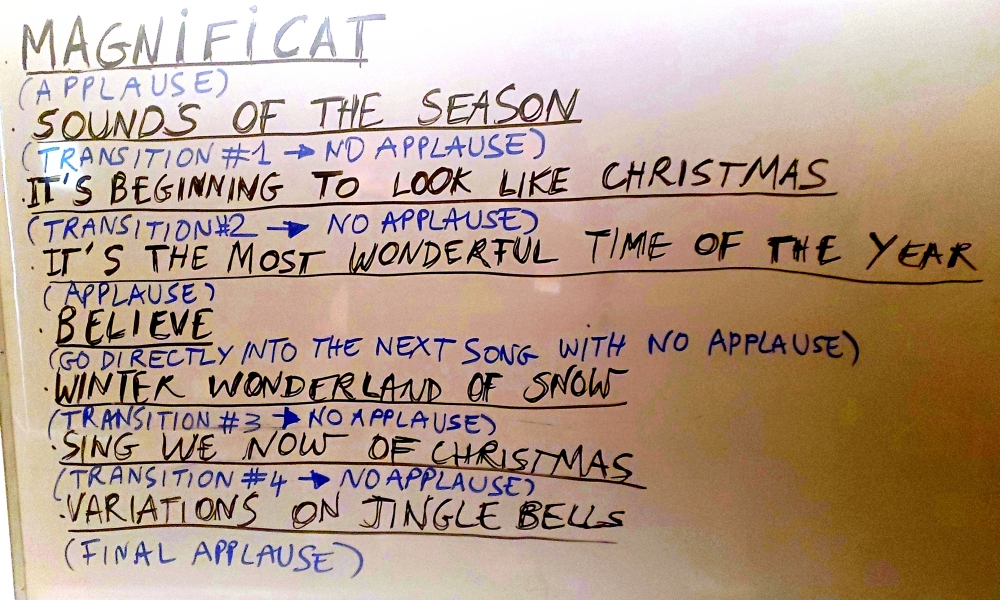 MAGNIFICAT
(APPLAUSE)
· SOUNDS OF THE SEASON
(TRANSITION #1 → NO APPLAUSE)
· IT'S BEGINNING TO LOOK LIKE CHRISTMAS
(TRANSITION #2 → NO APPLAUSE)
· IT'S THE MOST WONDERFUL TIME OF THE YEAR
(APPLAUSE)
· BELIEVE
(GO DIRECTLY INTO THE NEXT SONG WITH NO APPLAUSE)
· WINTER WONDERLAND OF SNOW
(TRANSITION #3 → NO APPLAUSE)
· SING WE NOW OF CHRISTMAS
(TRANSITION #4 → NO APPLAUSE)
· VARIATIONS ON JINGLE BELLS
(FINAL APPLAUSE)